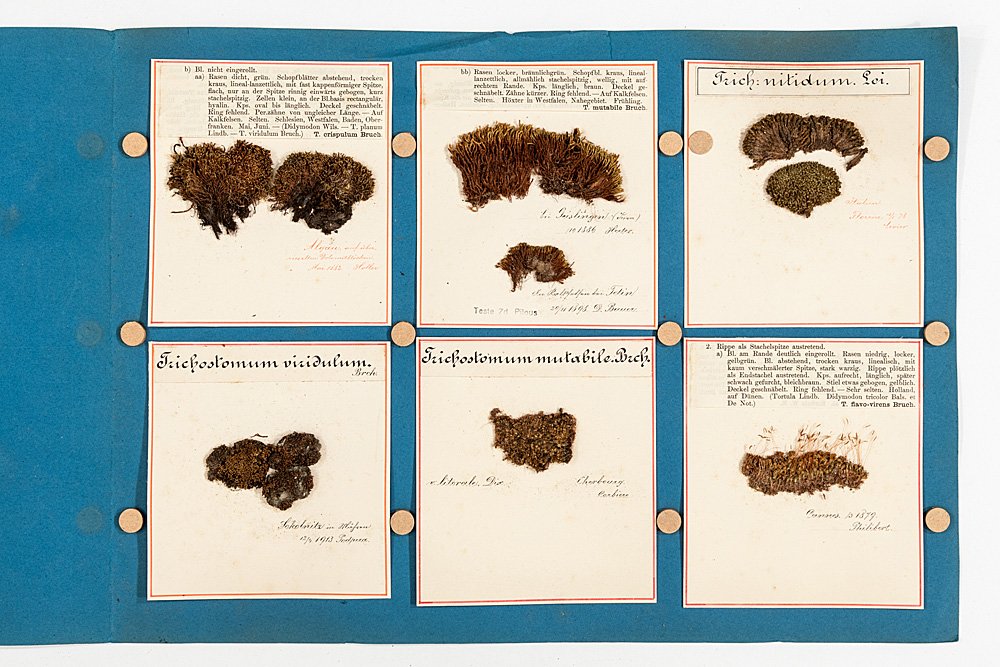 b) Bl. nicht eingerollt.
aa) Rasen dicht, grün. Schopfblätter abstehend, trocken
kraus, lineal-lanzettlich, mit fast kappenförmiger Spitze,
flach, nur an der Spitze rinnig einwärts gebogen, kurz
stachelspitzig. Zellen klein, an der Bl.basis rectangulär,
hyalin. Kps. oval bis länglich. Deckel geschnäbelt.
Ring fehlend. Per.zähne von ungleicher Länge. — Auf
Kalkfelsen. Selten. Schlesien, Westfalen, Baden, Ober-
franken. Mai, Juni. — (Didymodon Wils. — T. planum
Lindb. — T. viridulum Bruch.) T. crispulum Bruch.
Allgäu, auf
Mai 1882 Holler
bb) Rasen locker, bräunlichgrün. Schopfbl. kraus, lineal-
lanzettlich, allmählich stachelspitzig, wellig, mit auf-
rechtem Rande. Kps. länglich, braun. Deckel ge-
schnäbelt. Zähne kürzer. Ring fehlend. — Auf Kalkfelsen.
Selten. Höxter in Westfalen, Nahegebiet. Frühling.
T. mutabile Bruch.
bei Geislingen
1886
1898 D. Bauer
Teste
Trich: nitidum. Lei.
Italien
Florenz
Levier
Trichostomum viridulum.
Brch.
Sokolnitz in Mähren
1913 Podpěra
Trichostomum mutabile. Brch.
v. litorale. Dix. Cherbourg.
Corbière
2. Rippe als Stachelspitze austretend.
a) Bl. am Rande deutlich eingerollt. Rasen niedrig, locker,
gelbgrün. Bl. abstehend, trocken kraus, linealisch, mit
kaum verschmälerter Spitze, stark warzig. Rippe plötzlich
als Endstachel austretend. Kps. aufrecht, länglich, später
schwach gefurcht, bleichbraun. Stiel etwas gebogen, gelblich.
Deckel geschnäbelt. Ring fehlend. — Sehr selten. Holland,
auf Dünen. (Tortula Lindb. Didymodon tricolor Bals. et
De Not.) — T. flavo-virens Bruch.
Cannes. 1879.
Philibert.